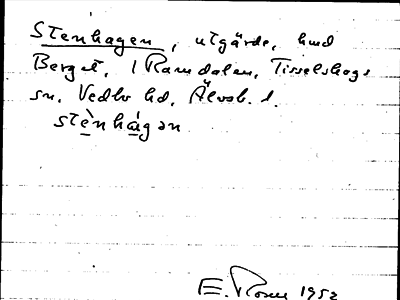 Stenhagen, utgärde, hmd
Berget, 1 Ramdalen, Tisselskogs
sn, Vedbo hd, Älvsb. l.
stènhágən
E. Rosell 1952